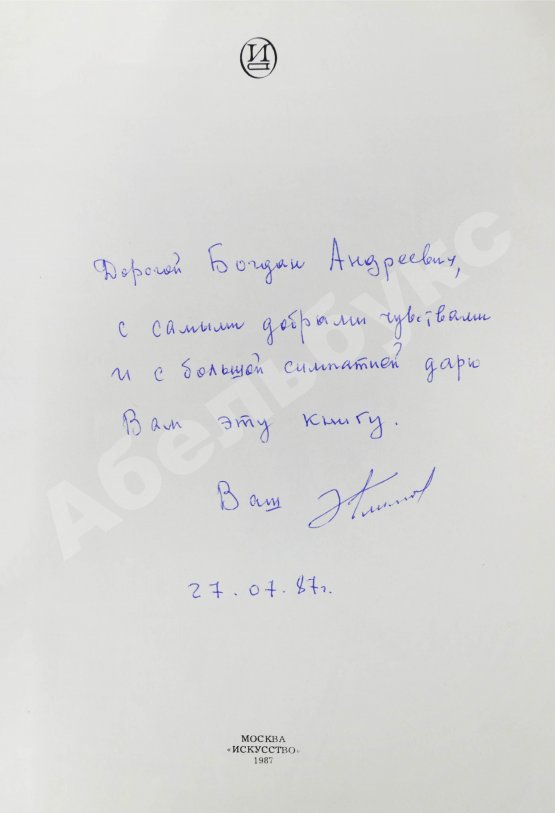 И
Дорогой Богдан Андреевич,
с самыми добрыми чувствами
и с большой симпатией дарю
Вам эту книгу.
Ваш
27.07.87г.
Абельбукс
МОСКВА
«ИСКУССТВО»
1987